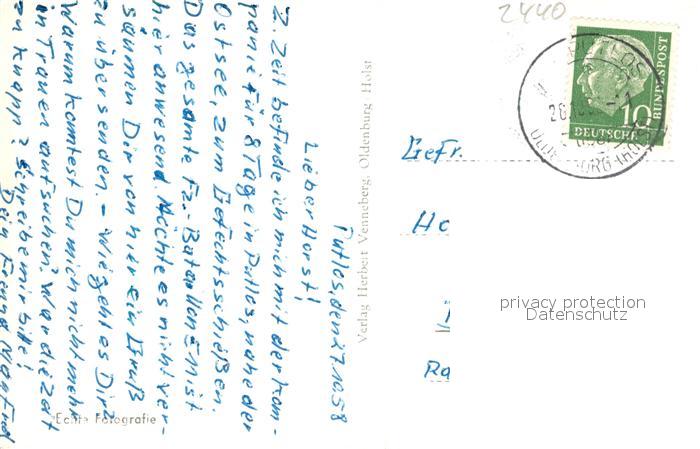 2440
PUTLOS
OLDENBURG (HOLST)
10
DEUTSCHE
BUNDESPOST
Putlos, den 27.10.58
Lieber Horst!
Z. Zeit befinde ich mich mit der Kom-
panie für 8 Tage in Putlos, nahe der
Ostsee, zum Gefechtsschießen.
Das gesamte Fz.-Bataillon ist
hier anwesend. Möchte es nicht ver-
säumen Dir von hier ein Gruß
zu übersenden. - Wie geht es Dir?
Warum konntest Du mich nicht mehr
in Trauen aufsuchen? War die Zeit
zu knapp? Schreibe mir bitte!
Dein Freund Manfred
Echte Fotografie
Verlag Herbert Venneberg, Oldenburg Holst
Gefr.
Ho
Ra
privacy protection
Datenschutz